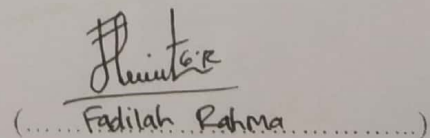 (.....Fadilah Rahma..............)